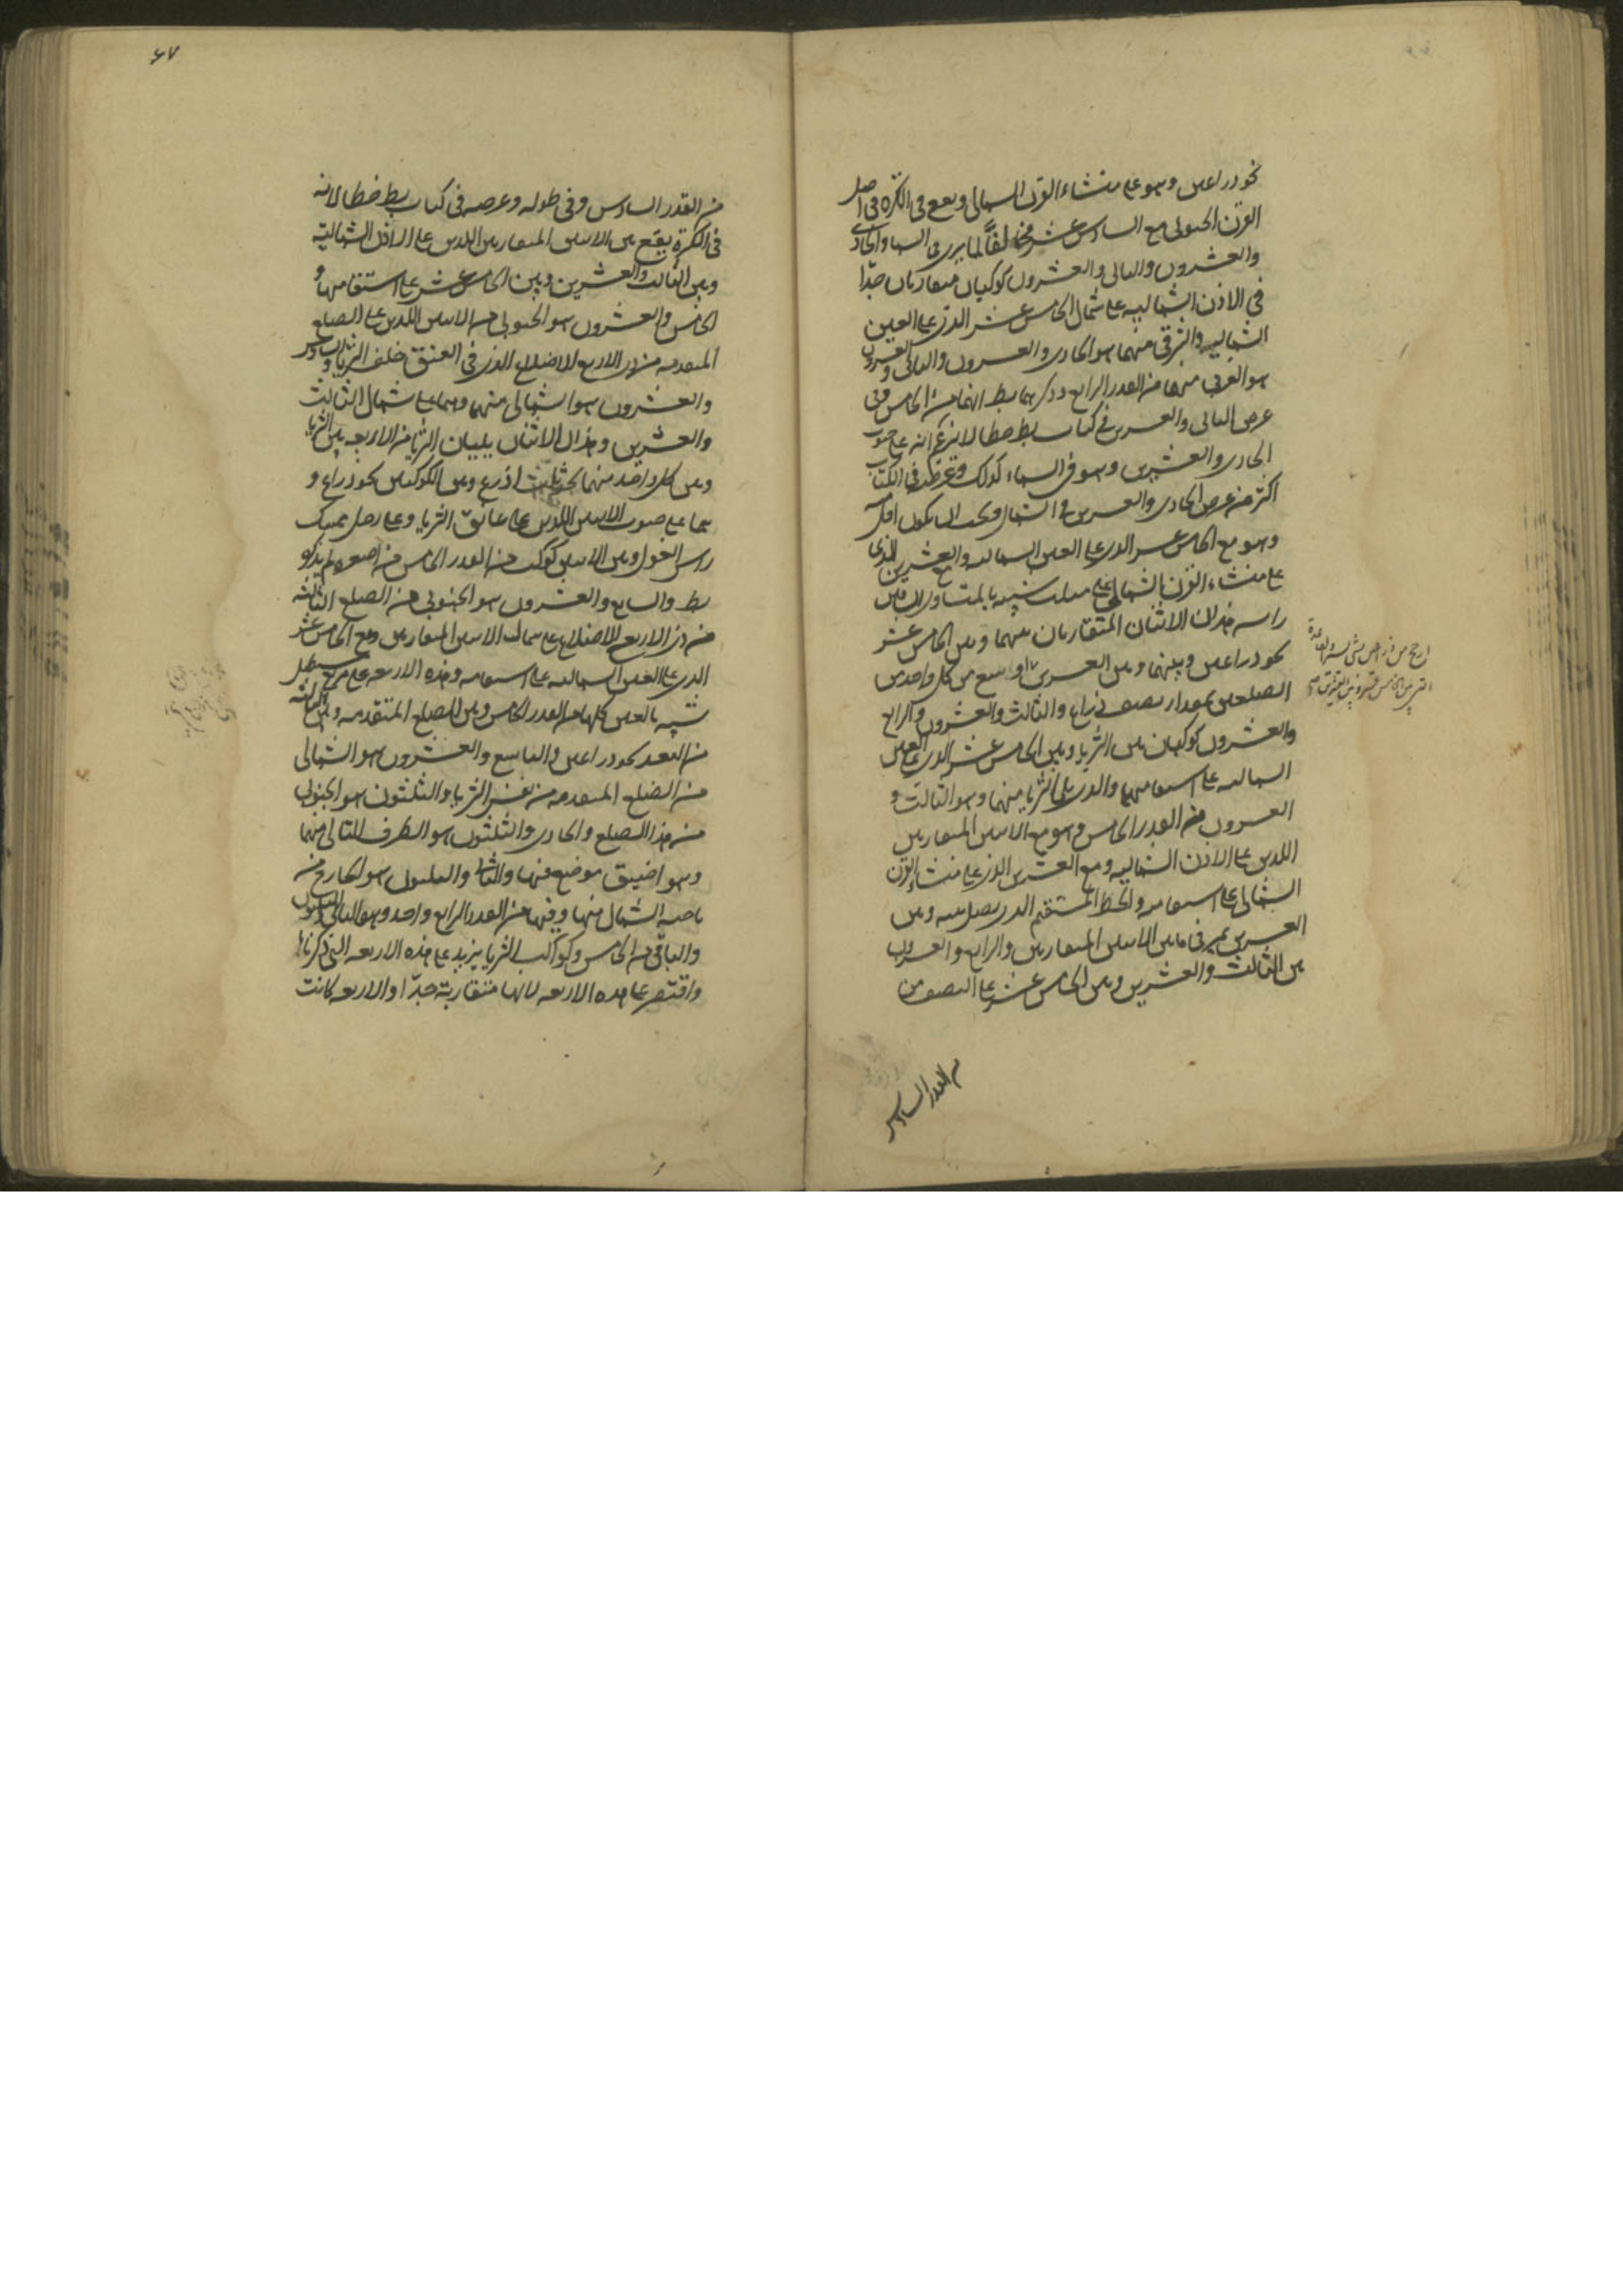 نحو ذراعين وهو على منشاء القرن الشمالى ويقع فى الكرة فى اصل
القرن الجنوبى مع السادس عشر مخالفًا لما يرى فى السما والحادى
والعشرون والثانى والعشرون كوكبان متقاربان جدّا
فى الاذن الشماليه على شمال الخامس عشر الذى على العين
الشماليه والشرقى منهما هو الحادى والعشرون والثانى والعشرون
هو الغربى منهما من القدر الرابع وذكرهما بط انهما من الخامس وفى
عرض الثانى والعشرين فى كتاب بط خطا لانه زعم انه على جنوب
الحادى والعشرين وهو فى السماء كذلك وعرضه فى الكتاب
اكثر من عرض الحادى والعشرين فى الشمال ويجب ان يكون اقل
وهو مع الخامس عشر الذى على العين الشماليه والعشرين الذى
على منشاء القرن الشمالى على مثلث شبيه بالمتساوى الساقين
راسه هذان الاثنان المتقاربان بينهما وبين الخامس عشر
نحو ذراعين وبينهما وبين العشرين اوسع من كل واحد من
الضلعين بمقدار نصف ذراع والثالث والعشرون والرابع
والعشرون كوكبان بين الثريا وبين الخامس عشر الذى على العين
الشماليه على استقامتهما والذى يلى الثريا منهما وهو الثالث و
العشرون من القدر الخامس وهو مع الاثنين المتقاربين
اللذين على الاذن الشماليه ومع العشرين الذى على منشاء القرن
الشمالى على استقامه والخط المستقيم الذى يصل بينه وبين
العشرين يمر فى ما بين الاثنين المتقاربين والرابع والعشرون
بين الثالث والعشرين وبين الخامس عشر على النصف من
من القدر السادس
٤٧
من القدر السادس وفى طوله وعرضه فى كتاب بط خطا لانه
فى الكرة يقع بين الاثنين المتقاربين اللذين على الاذن الشماليه
وبين الثالث والعشرين وبين الخامس عشر على استقامتهما و
الخامس والعشرون هو الجنوبى من الاثنين اللذين على الضلع
المتقدمه من ذى الاربع الاضلاع الذى فى العنق خلف الثريا والسادس
والعشرون هو الشمالى منهما وهما على شمال الثالث
والعشرين وهذان الاثنان يليان الثريا من الاربعه بين الثريا
وبين كل واحد منهما نحو ثلث اذرع وبين الكوكبين نحو ذراع و
هما على جنوب الاثنين اللذين على عاتق الثريا وعلى رجل ممسك
راس الغول وبين الاثنين كوكب من القدر الخامس من اصغره لم يذكره
بط والسابع والعشرون هو الجنوبى من الضلع التالثه
من ذى الاربعه الاضلاع على شمال الاثنين المتقاربين ومع الخامس عشر
الذى على العين الشماليه على استقامه وهذه الاربعه على مربع مستطيل
شبيه بالعين كلها من القدر الخامس وبين الضلع المتقدمه وبين التالثه
من البعد نحو ذراعين والتاسع والعشرون هو الشمالى
من الضلع المتقدمه من نفس الثريا والثلثون هو الجنوبى
من هذا الضلع والحادى والثلثون هو الطرف التالى منها
وهو اضيق موضع فيها والثانى والثلثون هو الخارج من
ناحيه الشمال منها وفيها من القدر الرابع واحد وهو الثانى والثلثون
والباقى من الخامس وكواكب الثريا يزيد على هذه الاربعه التى ذكرناها
واقتصر على هذه الاربعه لانها متقاربة جدّا والاربعه كانت